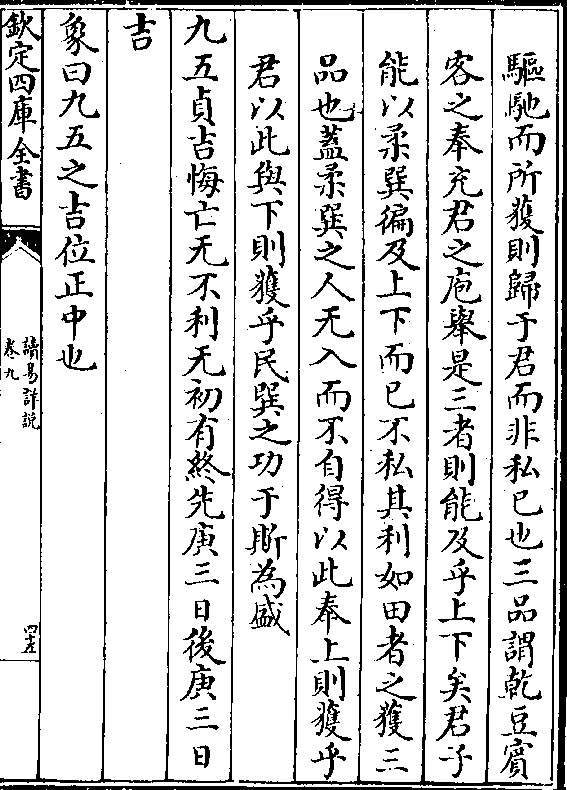 驅馳而所獲則歸于君而非私已也三品謂乾豆賓
客之奉充君之庖舉是三者則能及乎上下矣君子
能以柔巽徧及上下而已不私其利如田者之獲三
品也蓋柔巽之人无入而不自得以此奉上則獲乎
君以此與下則獲乎民巽之功于斯為盛
九五貞吉悔亡无不利无初有終先庚三日後庚三日
吉
象曰九五之吉位正中也
欽定四庫全書
讀易詳說
卷九
四十五